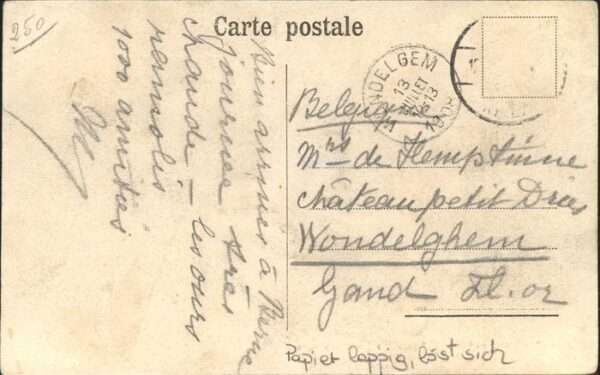 250
Carte postale
Bien arrivés à Berne
journée très
chaude – les ours
ramolis
1000 amitiés
WONDELGEM
13
JUILLET
1908
Belgique
Mrs de Hemptinne
château petit Dries
Wondelghem
Gand Fl. or
Papier lappig, löst sich